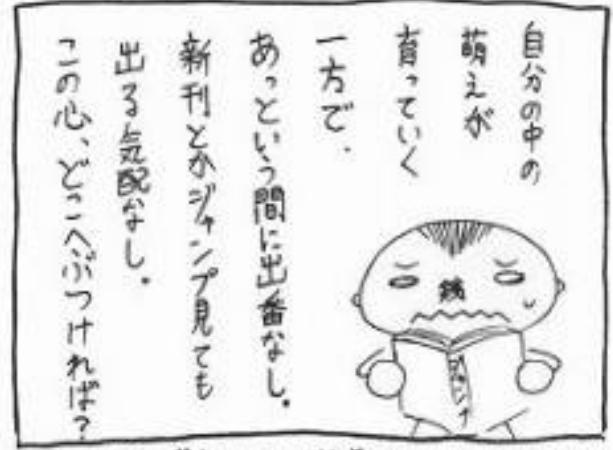 自分の中の
萌えが
育っていく
一方で、
あっという間に出番なし。
新刊とかジャンプ見ても
出る気配なし。
この心、どこへぶつければ？
銭
ジャンプ